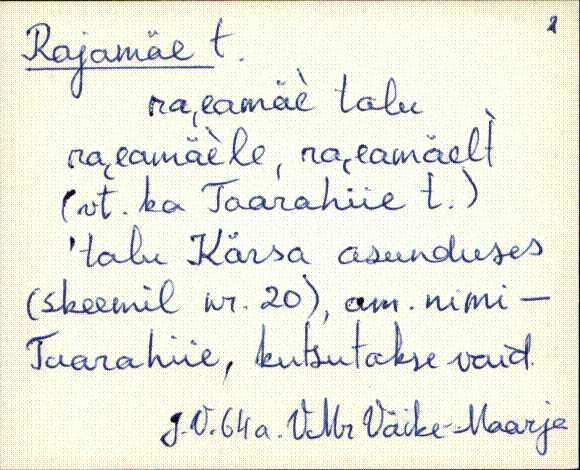 2
Rajamäe t.
ra͔eamäè talu
ra͔eamäèle, ra͔eamäelt̀
(vt. ka Taarahiie t.)
'talu Kärsa asunduses
(skeemil nr. 20), am. nimi –
Taarahiie, kutsutakse vaid
J.V. 64 a. VMr Väike-Maarja